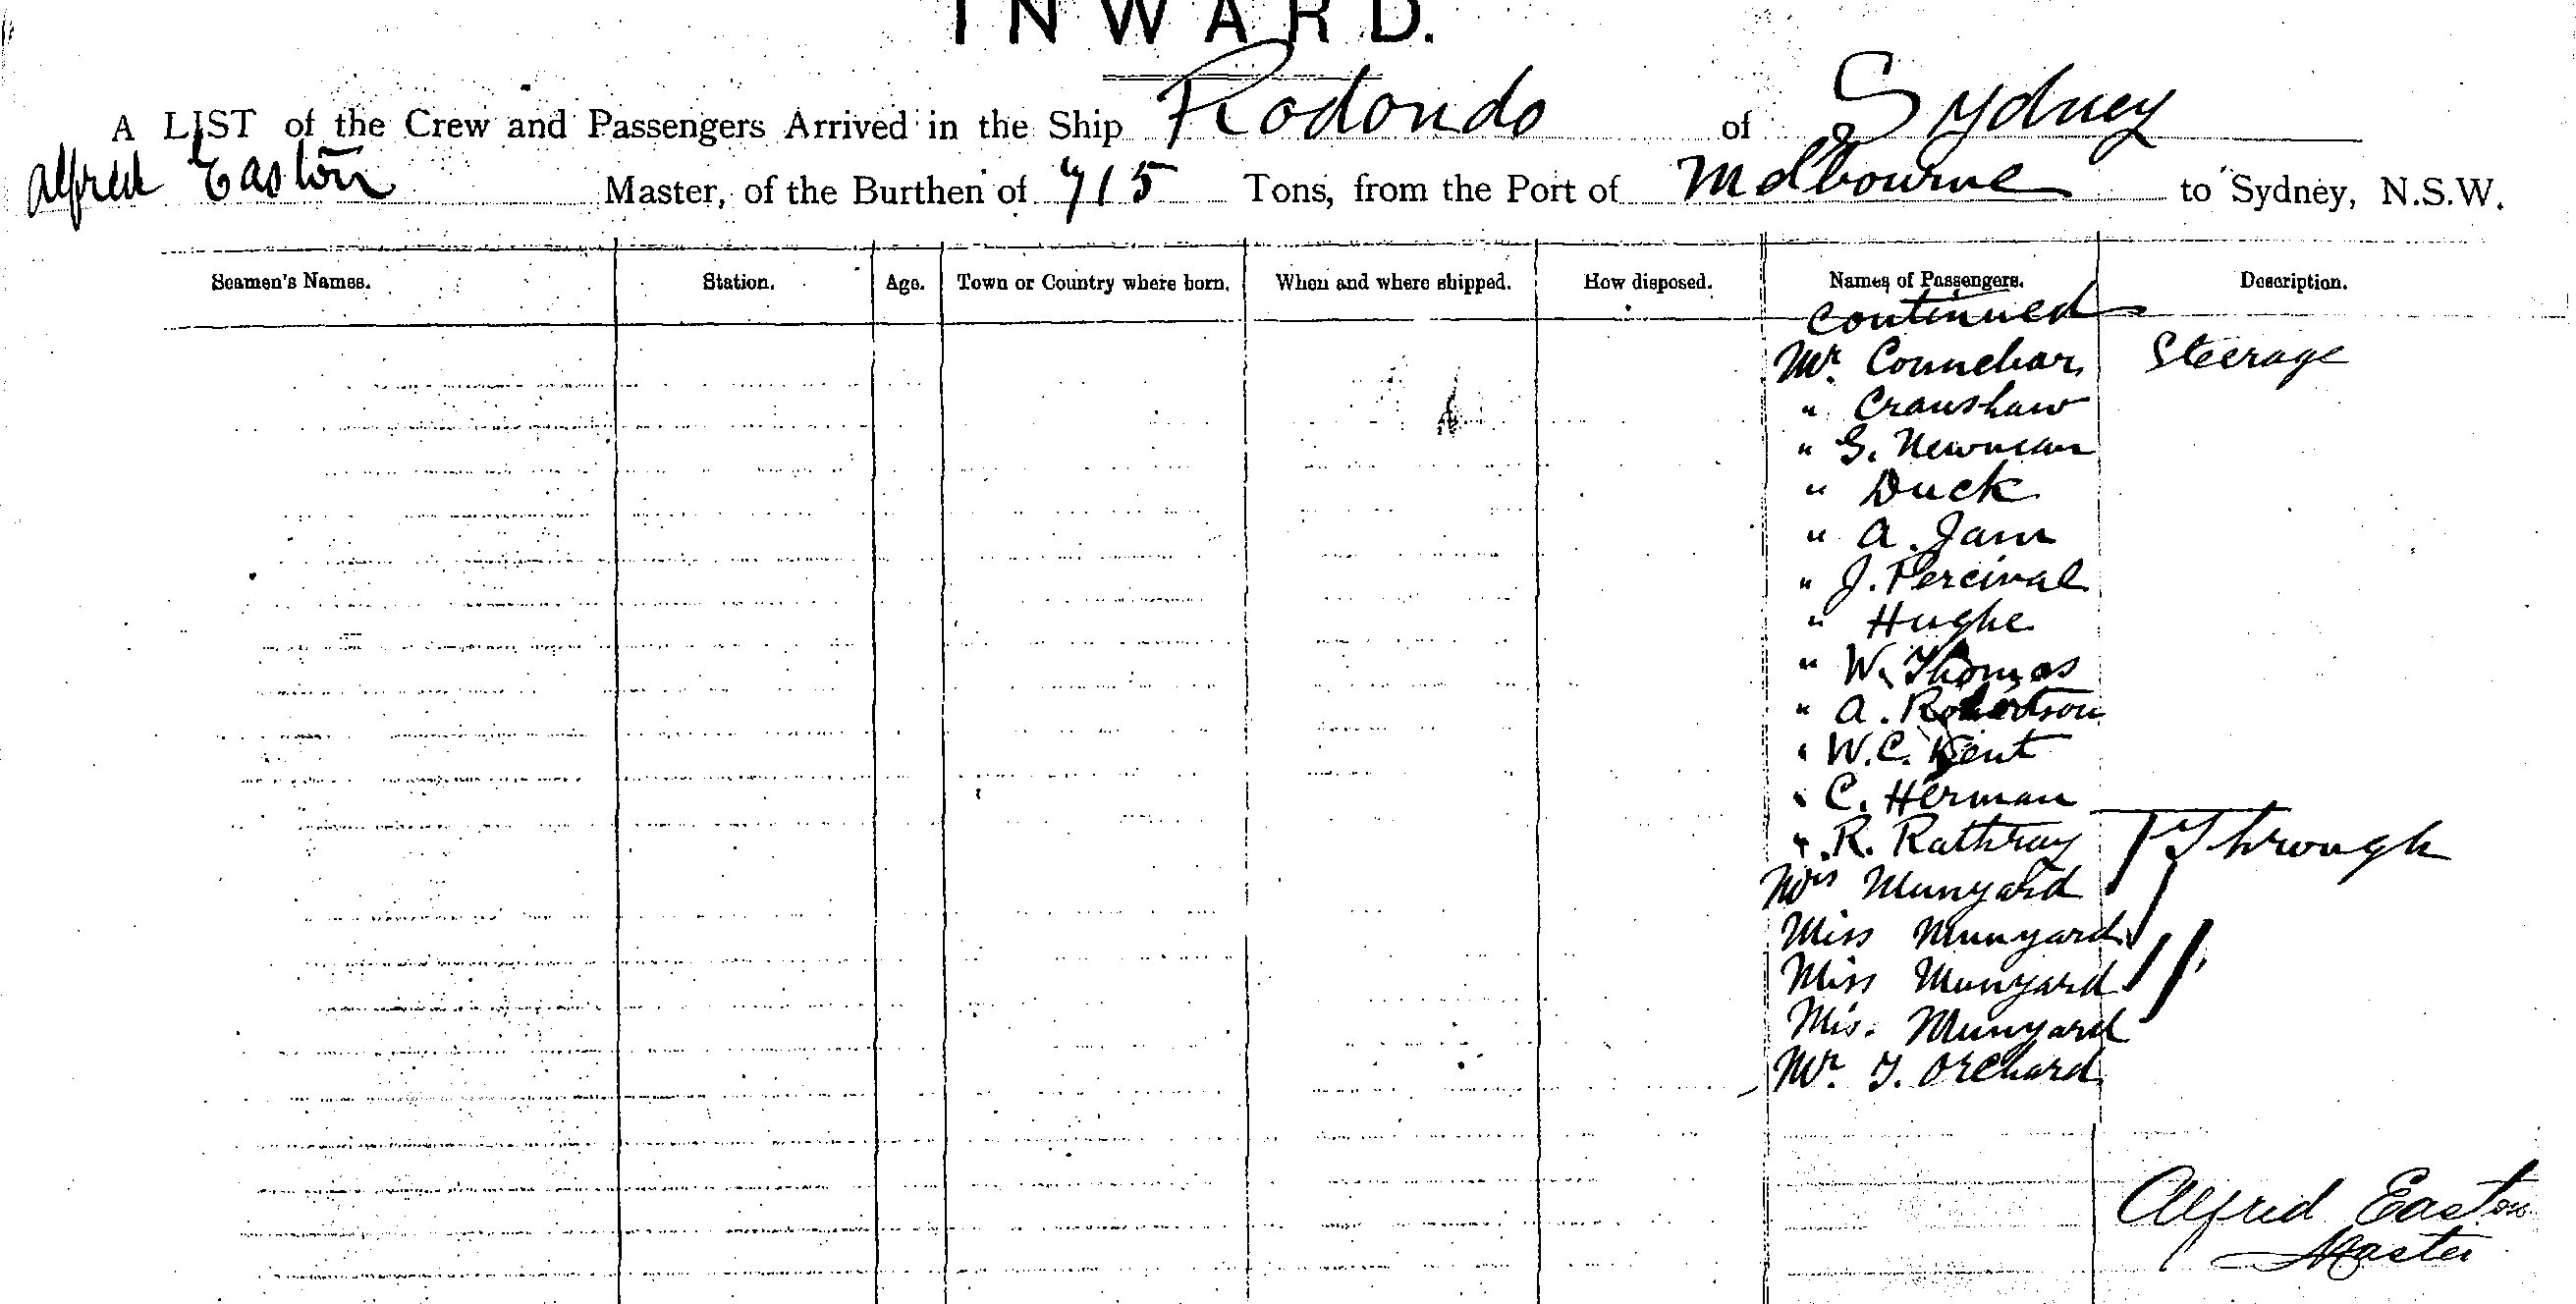 INWARD.
A LIST of the Crew and Passengers Arrived in the Ship Rodondo of Sydney
Alfred Easton Master, of the Burthen of 715 Tons, from the Port of Melbourne to Sydney, N.S.W.
Seamen's Names. Station. Age. Town or Country where born. When and where shipped. How disposed. Names of Passengers. Description.
Continued
Mr. Connebar Steerage
" Cranshaw
" G. Newman
" Duck
" A. Jam
" J. Percival
" Hughe
" W. Thomas
" A. Robertson
" W.C. Kent
" C. Herman
" R. Rathray Through
Mrs Munyard
Miss Munyard
Miss Munyard
Mis. Munyard
Mr. T. Orchard
Alfred Easton
Master